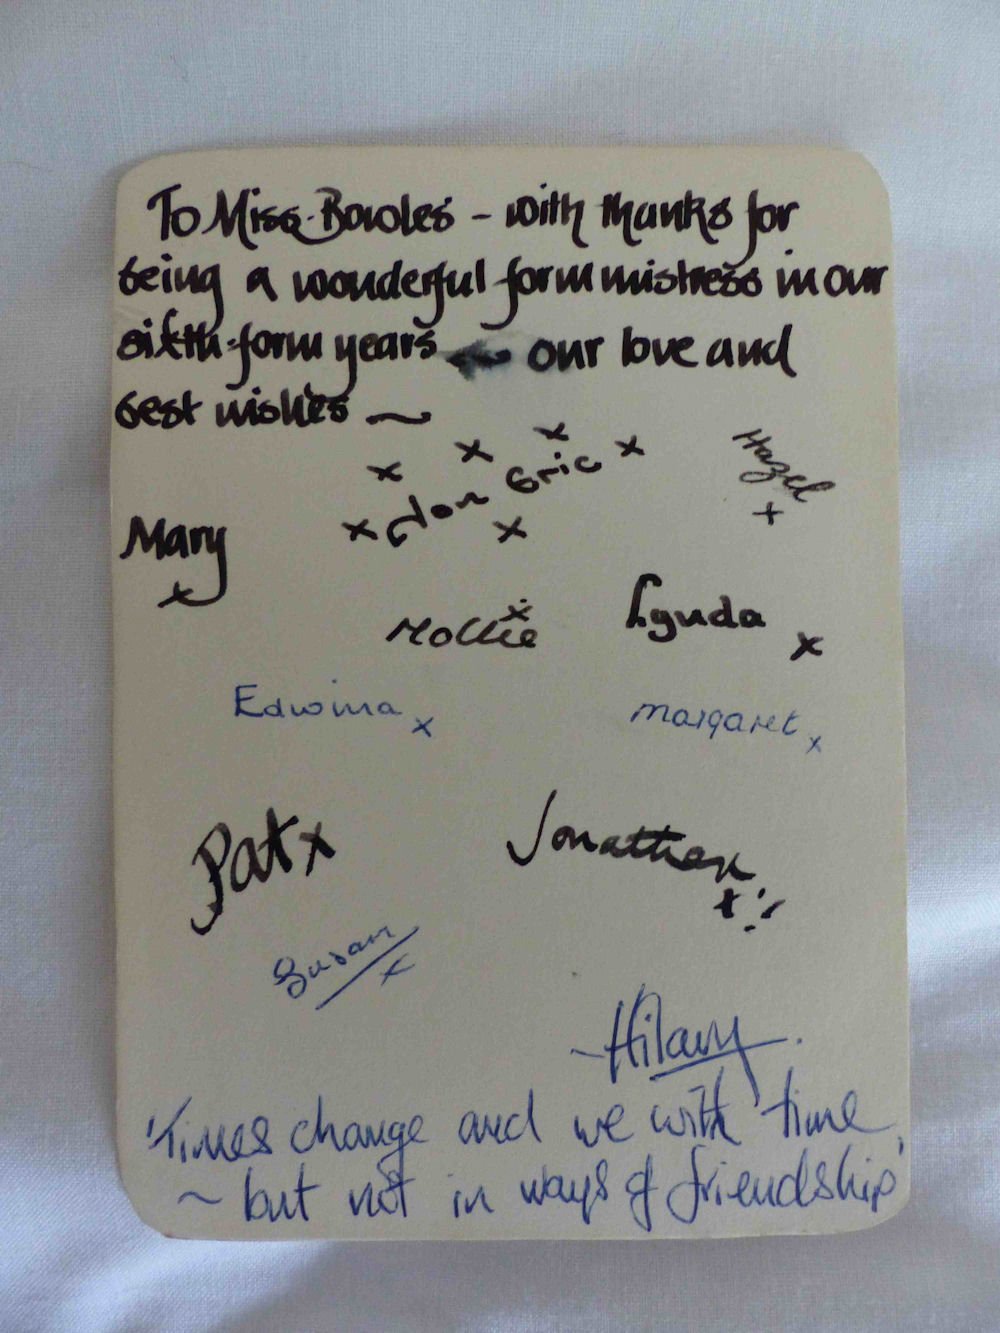 To Miss Bowles - with thanks for
being a wonderful form mistress in our
sixth-form years ~ our love and
best wishes ~
x x x x
Hazel
x
Eric
x x
Mary
x
Mollie x
Lynda
x
Edwina x
Margaret x
Pat x
Jonathan
x!!
Susan
x
- Hilary.
'Times change and we with time,
~ but not in ways of friendship'